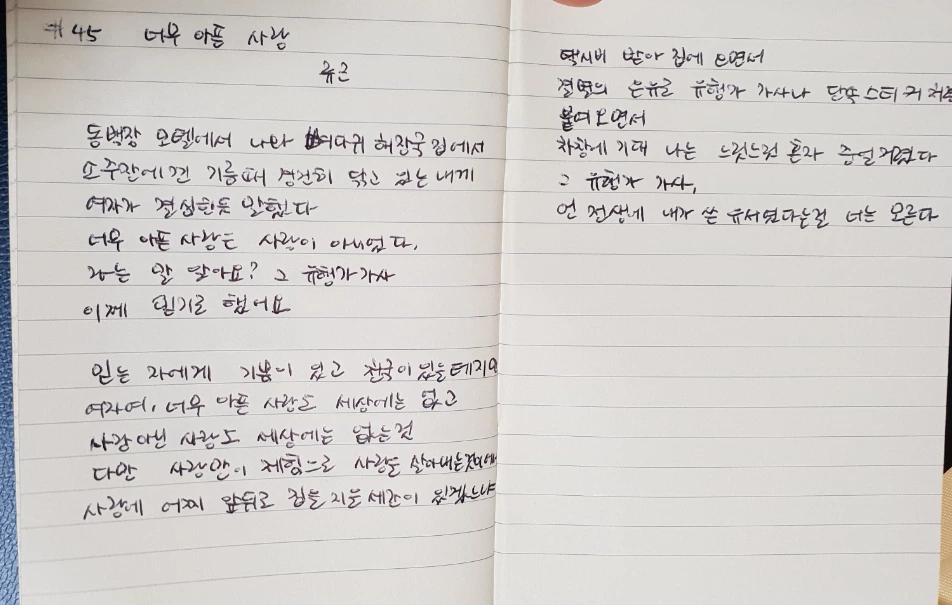 #45 너무 아픈 사랑
류근
동백장 모텔에서 나와 뼈다귀 해장국 집에서
소주잔에 낀 기름때 경건히 닦고 있는 내게
여자가 결심한듯 말했다
너무 아픈 사랑은 사랑이 아니었다,
라는 말 알아요? 그 유행가 가사
이제 믿기로 했어요
믿는 자에게 기쁨이 있고 천국이 있을테지만
여자여, 너무 아픈 사랑도 세상에는 없고
사랑 아닌 사랑도 세상에는 없는것
다만 사랑만이 제힘으로 사랑을 살아내는것이어서
사랑에 어찌 앞뒤로 집을 지을 세간이 있겠느냐
택시비 받아 집에 오면서
결별의 은유로 유행가 가사나 단속 스티커처럼
붙여오면서
차창에 기대 나는 느릿느릿 혼자 중얼거렸다
그 유행가 가사,
먼 전생에 내가 쓴 유서였다는걸 너는 모른다